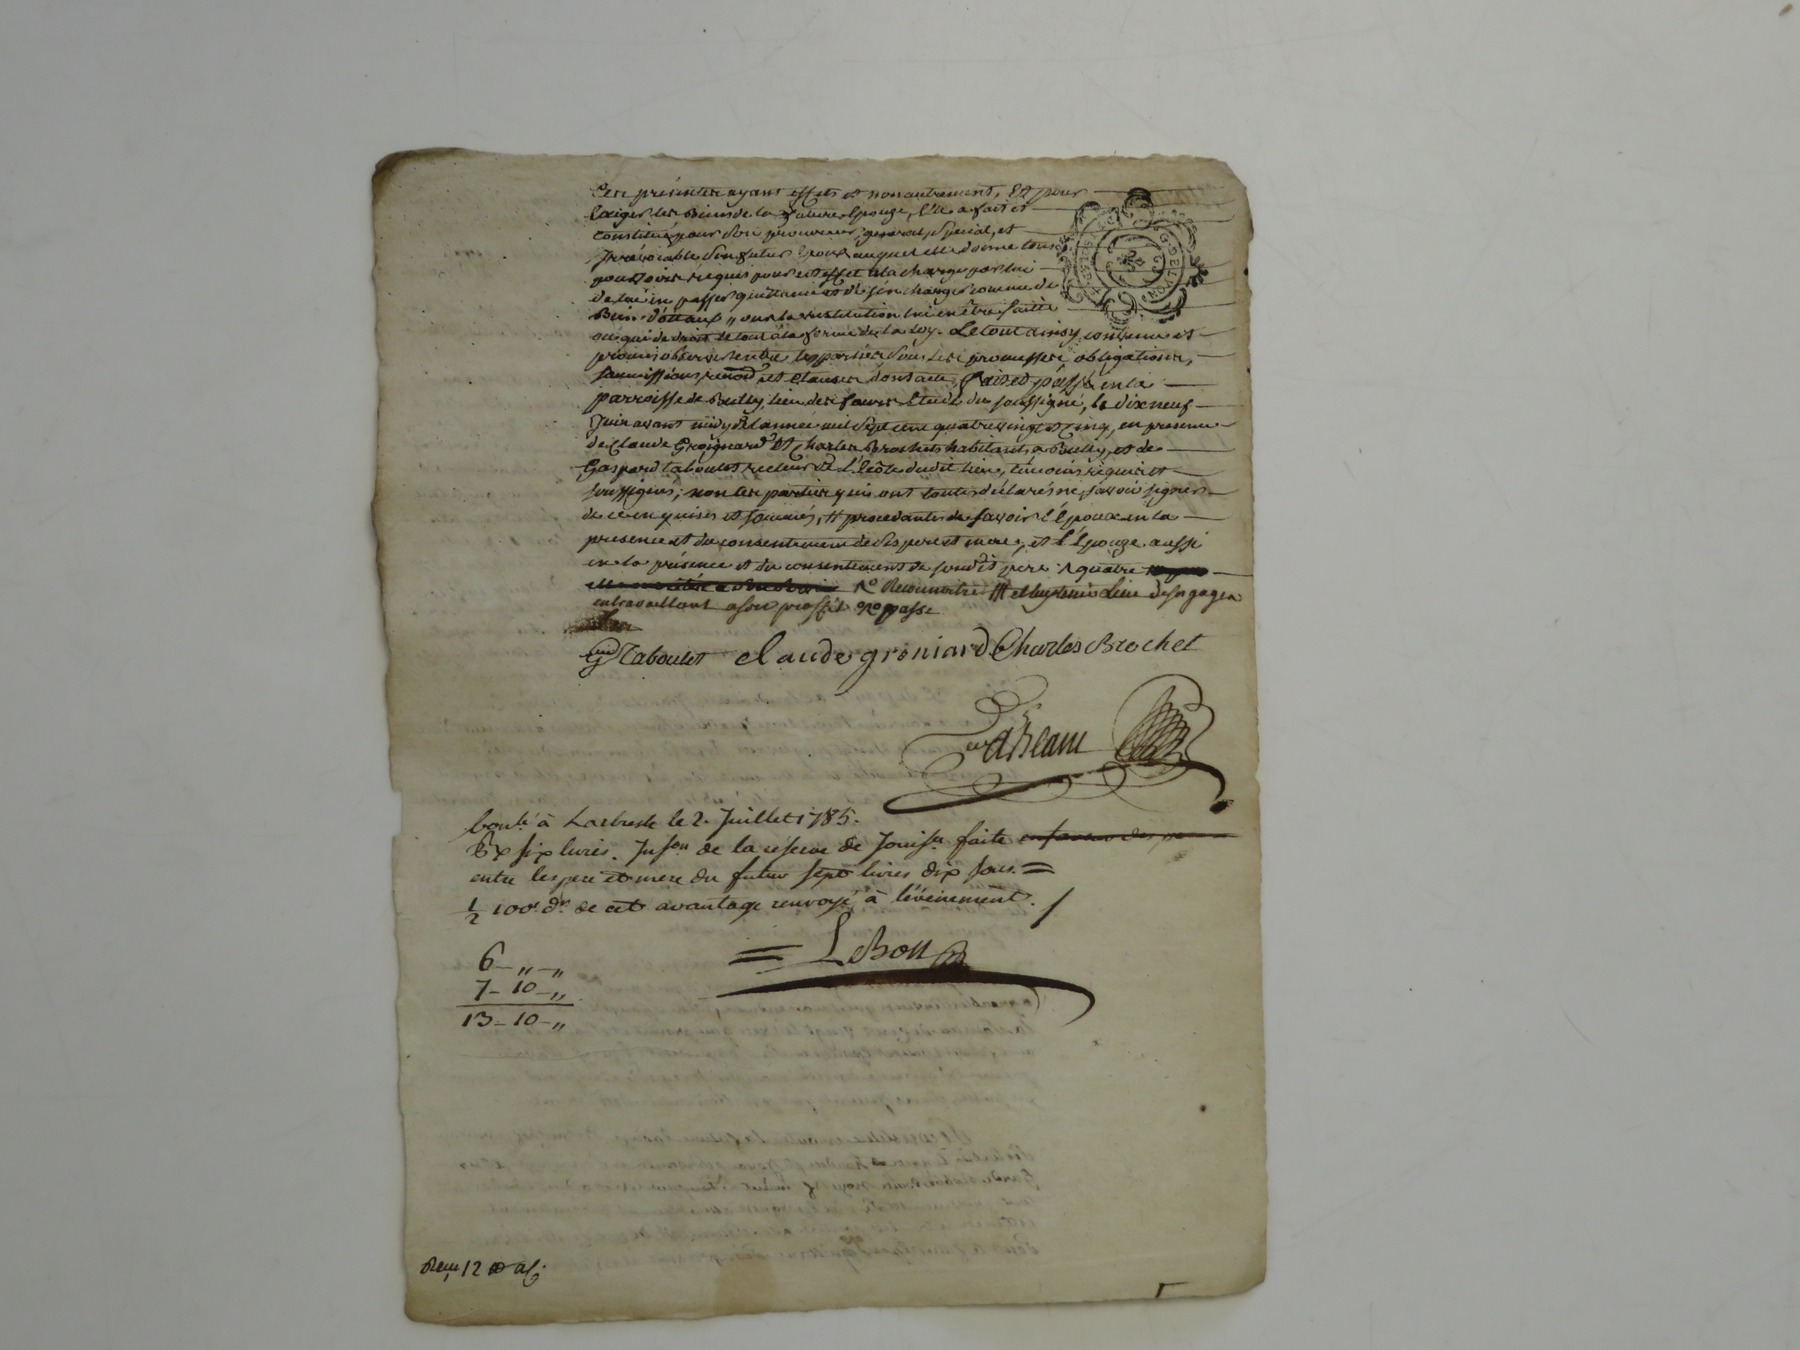 Ces présentes ayant effets et non autrement, Et pour
Exiger les Biens de la future Epouze, Elle a fait et
constitué pour son procureur, general, special, et
Irrévocable, Son futur Epoux auquel elle donne tous
pouvoirs requis pour cet effet à la charge par lui
passer quittance et de s'en charger comme de
Biens dottaux, la restitution lui en être faitte
ou qui de droit le tout à la forme de la loy. Le tout ainsy convenu et
promis observer entre les parties sous les promesses obligations,
soumissions, renond. et clauses dont acte, fait et passé en la
parroisse de Bully, lieu des fours Etude du soussigné, le dix neuf
Juin avant midy de l'année mil sept cent quatre vingt et Cinq, en presence
de Claude Groignard Et Charles Brochet habitants a Bully, et de
Gaspard Taboulet recteur de L'Ecole dudit lieu, témoins requis et
soussignés; non les parties qui ont toutes déclaré ne savoir signer
de ce enquises et sommés, procedantes savoir L'Epoux en la
presence et du consentement de ses pere et mere, et L'Epouze aussi
en la présence et du consentement de sondit père
Reconnoitre
en travaillant a son proffit passé
Taboulet claude groniard Charles Brochet
Lebon
Contlé à Larbresle le 2. Juillet 1785.
six livres. de la réserve de Jouisce faite
entre les pere et mere du futur sept livres dix sous =
1/2 100e dr de cet avantage renvoyé à l'événement.
6 - „ - „
7 - 10 - „
13 - 10 - „